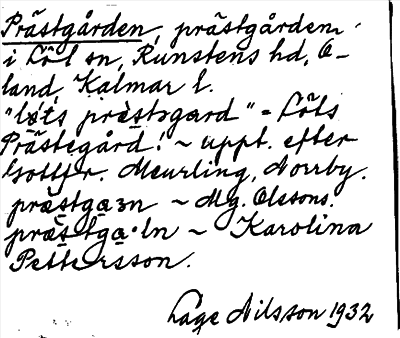 Prästgården, prästgården
i Löt sn, Runstens hd, Ö-
land, Kalmar l.
"løts præstəgard" = Löts
Prästegård! ~ uppt. efter
Gottfr. Meurling, Norrby.
prästgaзn ~ Mg. Olssons.
prästga·ln ~ Karolina
Pettersson.
Lage Nilsson 1932